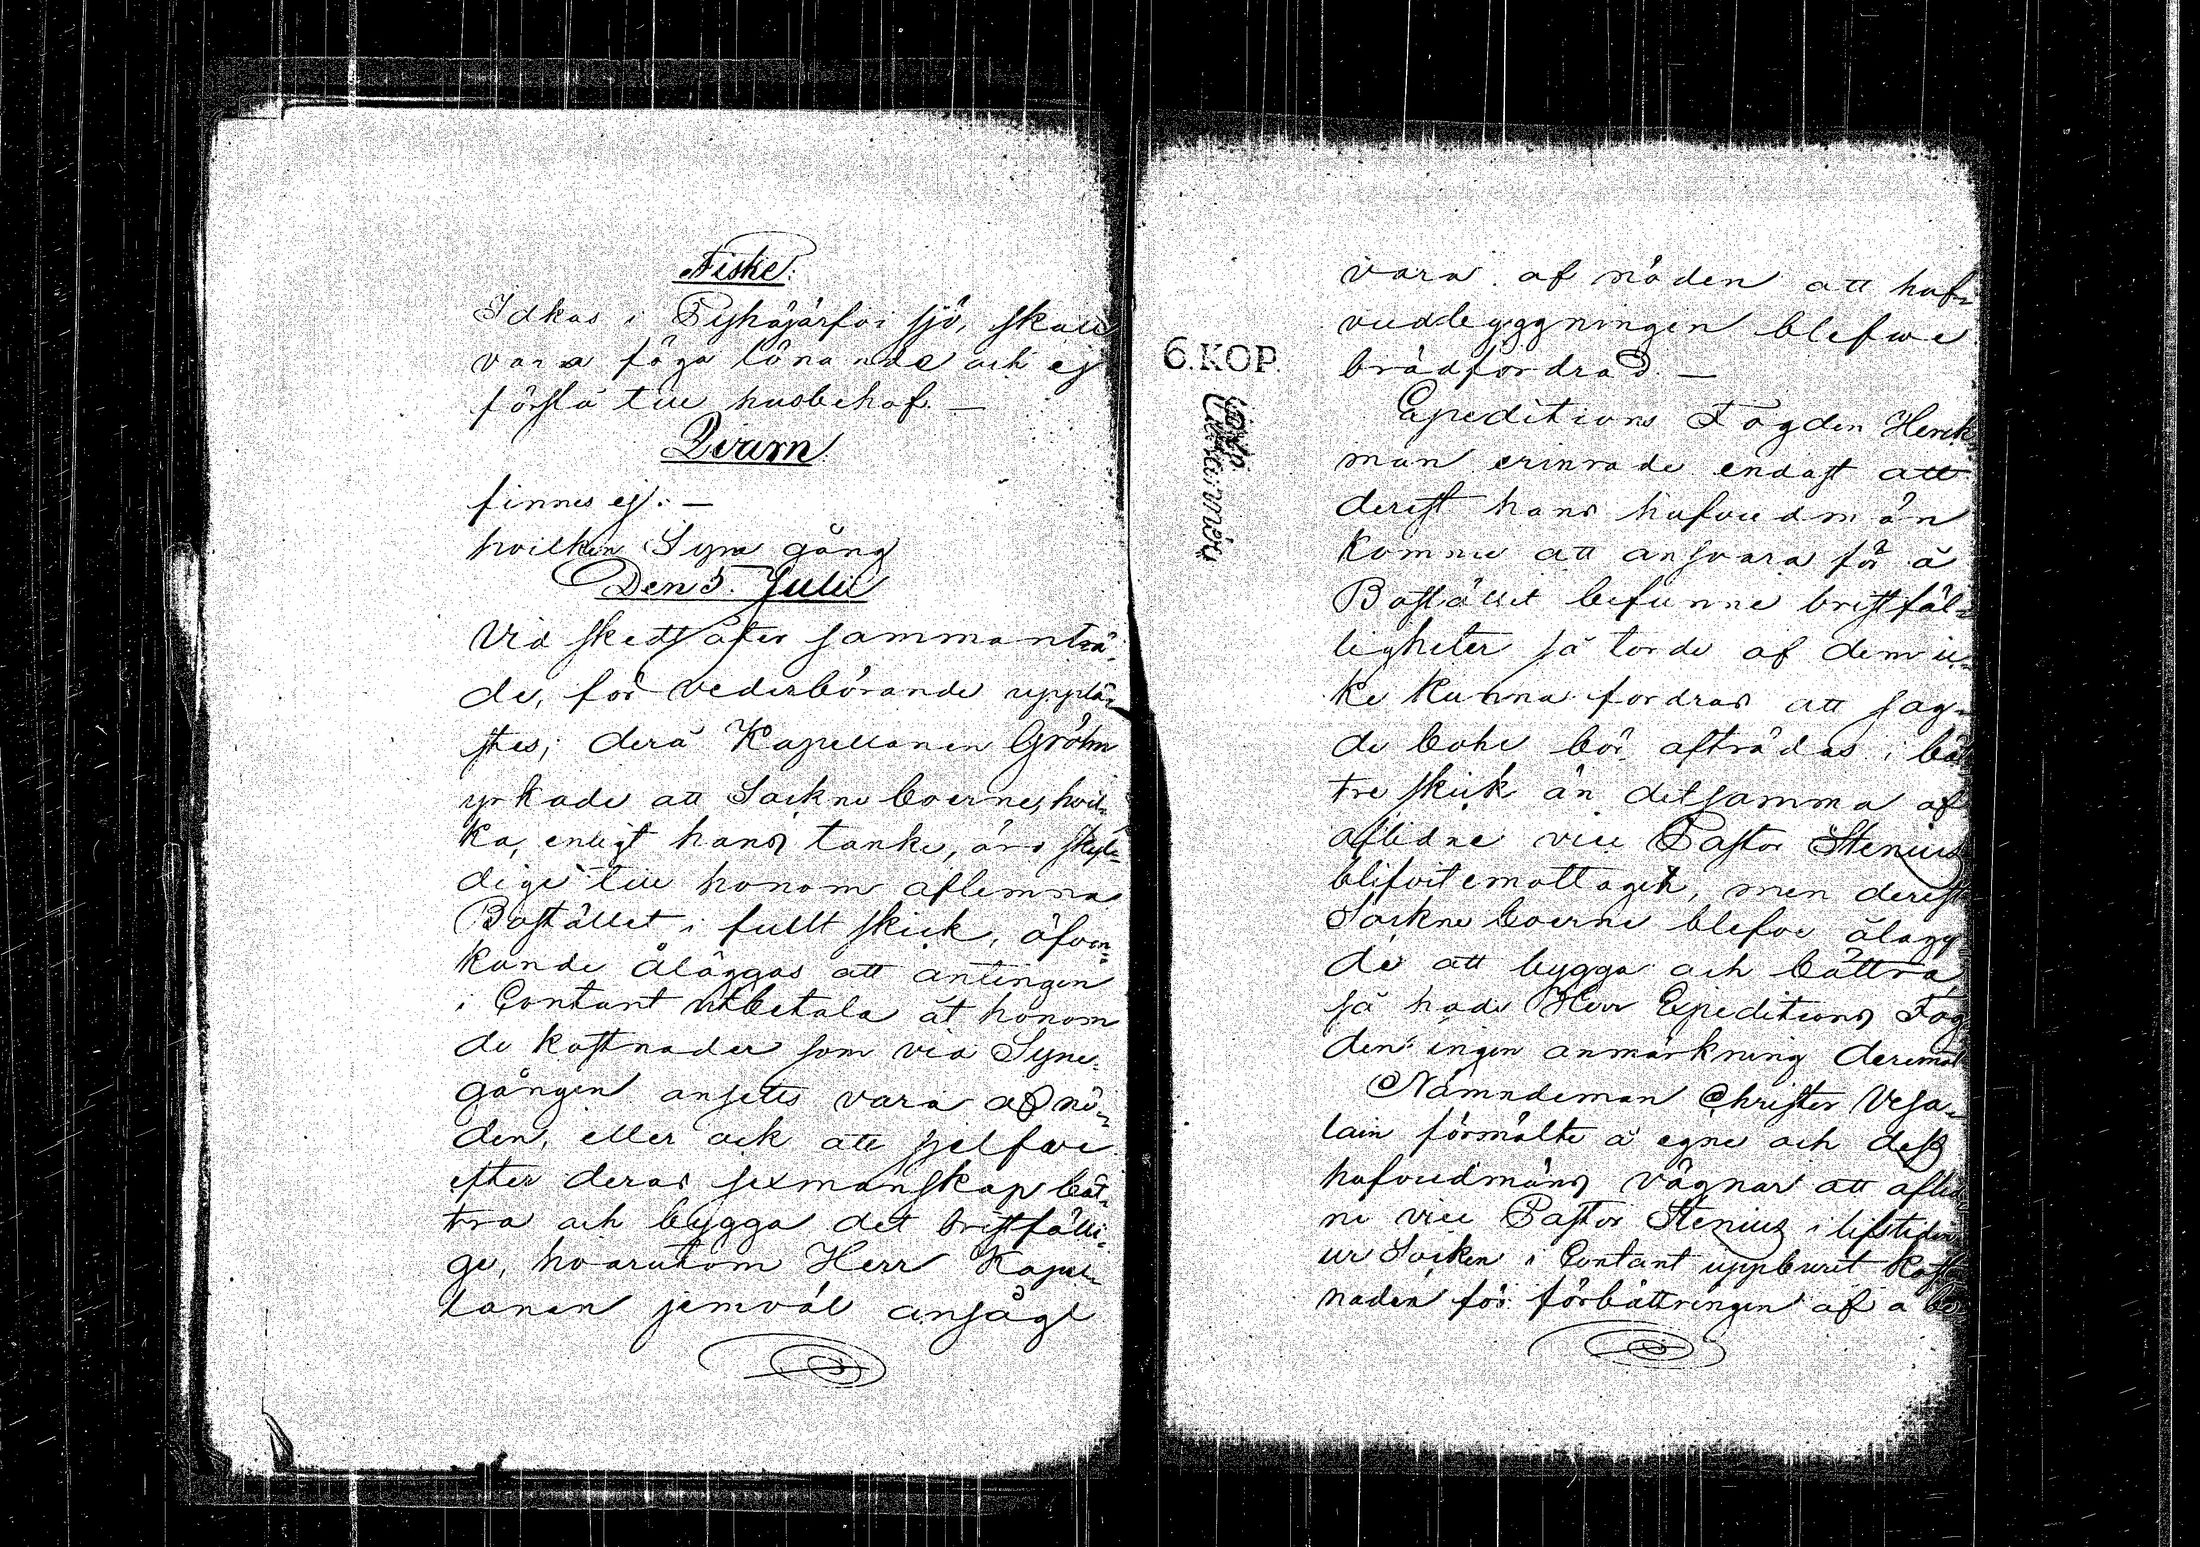 Fiske.
Idkas i Pyhäjärfvi sjö, skall
vara föga lönande och ej
förslå till husbehof. —
Qvarn.
finnes ej. —
hvilken Syne gång
Den 5. Julii
vid skedt åter sammanträ-
de, för vederbörande upplä-
stes; derå Kapellanen Gröhn
yrkade att Sockne boerne, hvil-
ka, enligt hans tanke, äro skyl-
dige till honom aflemna
Bostället i fullt skick, äfven
kunde åläggas att antingen
i Contant utbetala åt honom
de kostnader som vid Syne-
gången ansetts vara af nö-
den, eller ock att sjelfve
efter deras sexmanskap bät-
tra och bygga det bristfälli-
ge, hvarutom Herr Kapel-
lanen jemväl ansåge
vara af nöden att huf-
vudbyggningen blefwe
brådfordrad. —
Expeditions Fogden Herck-
man erinrade endast att
derest hans hufvudmän
komme att ansvara för å
Bostället befunne bristfäl-
ligheter så torde af dem ic-
ke kunna fordras att sag-
de bohl bör afträdas i bät-
tre skick än detsamma af
aflidne vice Pastor Stenius
blifvit emottaget, men derest
Sockne boerne blefve ålagg-
de att bygga och bättra,
så hade Herr Expeditions Fog-
den ingen anmärkning deremot
Nämndeman Christer Vesa-
lain förmälte å egne och dess
hufvudmäns vägnar att aflid-
ne vice Pastor Stenius i lifstiden
ur Socken i Contant uppburit kost-
naden för förbättringen af a
6. KOP.